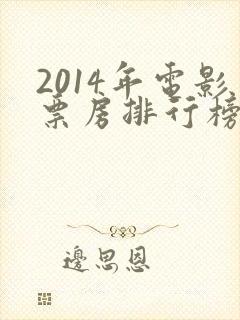 2014年电影
票房排行榜
邊思恩